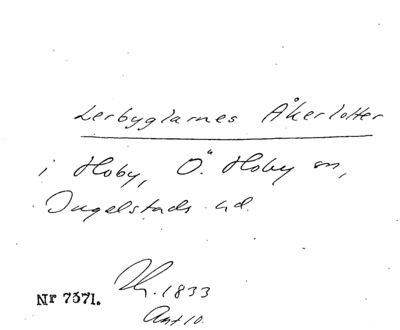 Lerbyglarnes Åkerlotter
i Hoby, Ö. Hoby sn,
Ingelstads hd.
1833
Nr 7571.
Ant 10.